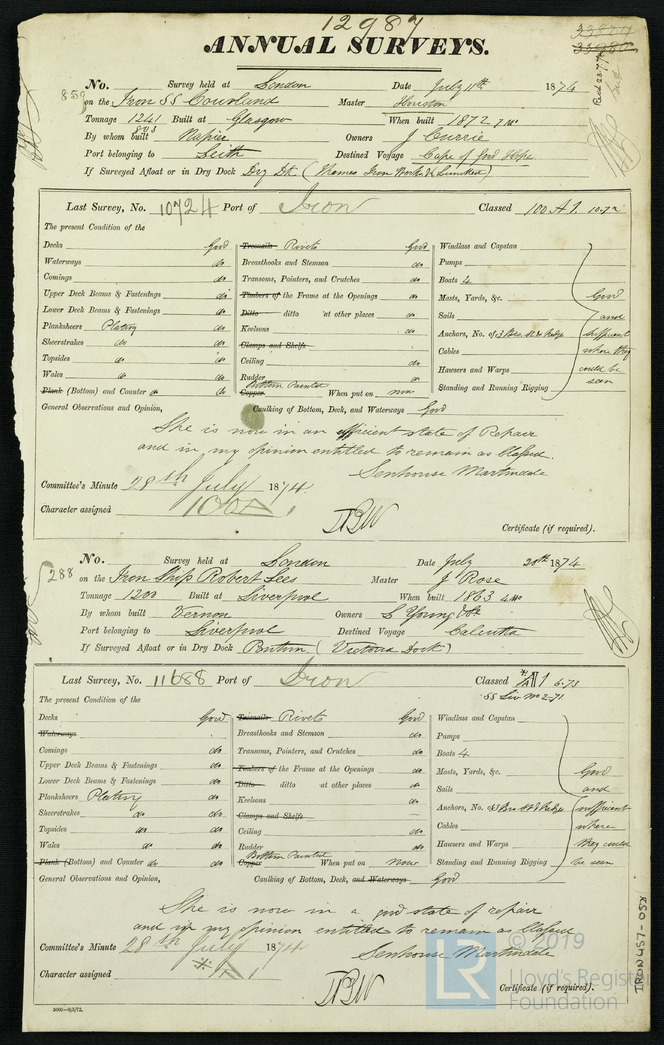 12987
ANNUAL SURVEYS.
No. 859 Survey held at London Date July 11th 1874
on the Iron SS Courland Master Hinston
Tonnage 1241 Built at Glasgow When built 1872 7 mo
By whom built Napier Owners J Currie
Port belonging to Leith Destined Voyage Cape of Good Hope
If Surveyed Afloat or in Dry Dock Dry Dk (Thames Iron Works Limited)
Last Survey, No. 10724 Port of Iron Classed 100 A1. 10.72
The present Condition of the
Decks Good Treenails Rivets Good Windlass and Capstan
Waterways do Breasthooks and Stemson do Pumps
Comings do Transoms, Pointers, and Crutches do Boats 4
Upper Deck Beams & Fastenings do Timbers of the Frame at the Openings do Masts, Yards, &c. Good
Lower Deck Beams & Fastenings do Ditto ditto at other places do Sails and
Planksheers Plating do Keelsons do Anchors, No. of sufficient
Sheerstrakes do do Clamps and Shelfs Cables where they
Topsides do do Ceiling do Hawsers and Warps could be
Wales do do Rudder do Standing and Running Rigging seen
Plank (Bottom) and Counter do do Bottom Painted Copper When put on now
General Observations and Opinion, Caulking of Bottom, Deck, and Waterways Good
She is now in an efficient state of Repair
and in my opinion entitled to remain as Classed.
Senhouse Martindale
Committee's Minute 28th July 1874.
Character assigned 100A1
Certificate (if required).
No. 288 Survey held at London Date July 20th 1874
on the Iron Ship Robert Lees Master J Rose
Tonnage 1200 Built at Liverpool When built 1863 4 mo
By whom built Vernon Owners S Young
Port belonging to Liverpool Destined Voyage Calcutta
If Surveyed Afloat or in Dry Dock Pontoon (Victoria Dock)
Last Survey, No. 11688 Port of Iron Classed A1 6.73
SS Liv No 2-71
The present Condition of the
Decks Good Treenails Rivets Good Windlass and Capstan
Waterways Breasthooks and Stemson do Pumps
Comings do Transoms, Pointers, and Crutches do Boats 4
Upper Deck Beams & Fastenings do Timbers of the Frame at the Openings do Masts, Yards, &c. Good
Lower Deck Beams & Fastenings do Ditto ditto at other places do Sails and
Planksheers Plating do Keelsons do Anchors, No. of sufficient
Sheerstrakes do do Clamps and Shelfs Cables where
Topsides do do Ceiling do Hawsers and Warps they could
Wales do do Rudder do Standing and Running Rigging be seen
Plank (Bottom) and Counter do do Bottom Painted Copper When put on now
General Observations and Opinion, Caulking of Bottom, Deck, and Waterways Good
She is now in a good state of repair
and in my opinion entitled to remain as Classed
Senhouse Martindale
Committee's Minute 28th July 1874
Character assigned
Certificate (if required).
IRON457-058
© 2019
LR Lloyd's Register
Foundation